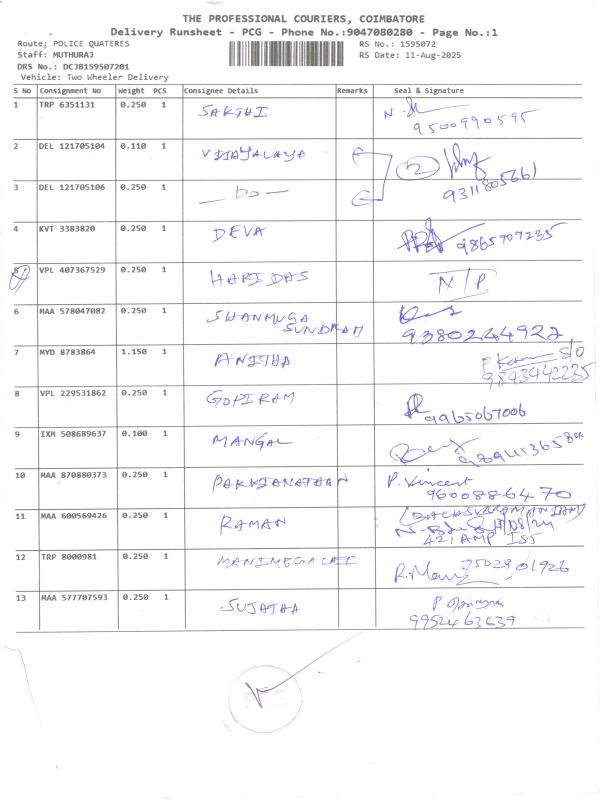 THE PROFESSIONAL COURIERS, COIMBATORE
Delivery Runsheet - PCG - Phone No.:9047080280 - Page No.:1
Route: POLICE QUATERES
RS No.: 1595072
Staff: MUTHURAJ
RS Date: 11-Aug-2025
DRS No.: DCJB159507201
Vehicle: Two Wheeler Delivery
S No Consignment No Weight PCS Consignee Details Remarks Seal & Signature
1 TRP 6351131 0.250 1 SAKTHI
9500990595
2 DEL 121705104 0.110 1 VIJAYALAYA 2
3 DEL 121705106 0.250 1 — DO —
9311805661
4 KVT 3383820 0.250 1 DEVA 9865707235
5 VPL 407367529 0.250 1 HARIDAS N/P
6 MAA 578047082 0.250 1 SHANMUGA
SUNDRAM 9380244922
7 MYD 8783864 1.150 1 ANITHA S/O
9843442235
8 VPL 229531862 0.250 1 GOPIRAM
9965067006
9 IXM 508689637 0.100 1 MANGAL
10 MAA 870880373 0.250 1 PAKKIANATHAN P. Vincent
9600886470
11 MAA 600569426 0.250 1 RAMAN
421 AMP IST
12 TRP 8000981 0.250 1 MANIMEGALAI 7502901926
R. Mani
13 MAA 577707593 0.250 1 SUJATHA
9952463639